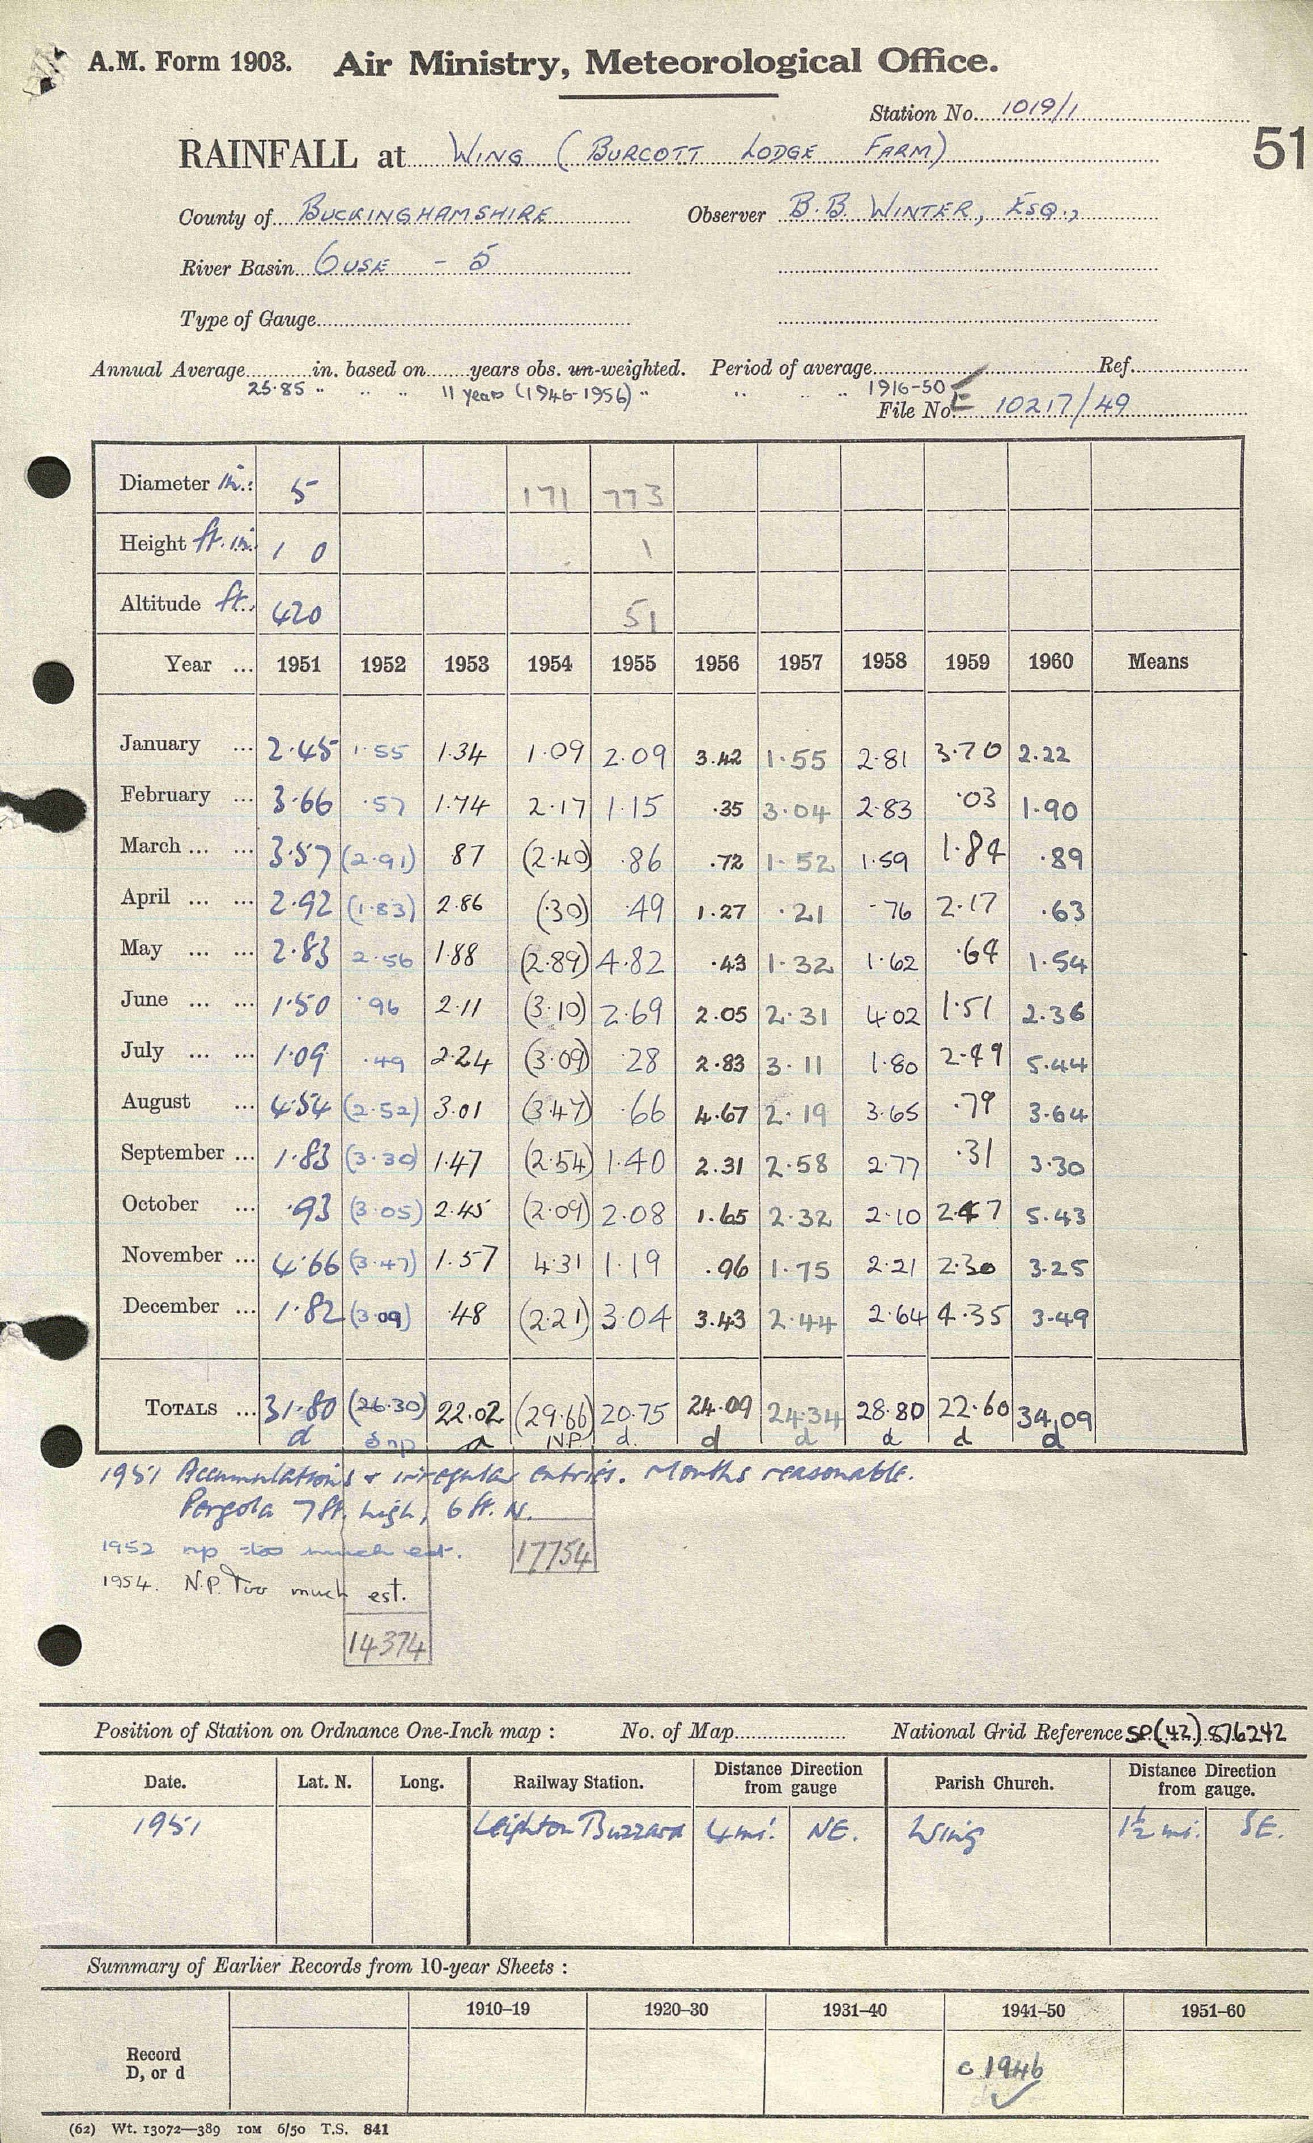 A.M. Form 1903. Air Ministry, Meteorological Office.
Station No. 1019/1
51
RAINFALL at WING (BURCOTT LODGE FARM)
County of BUCKINGHAMSHIRE Observer B.B. WINTER, ESQ.,
River Basin OUSE - 5
Type of Gauge
Annual Average in. based on years obs. un-weighted. Period of average Ref.
25.85 " " " 11 years (1946-1956) " " " " 1916-50
File No. E 10217/49
Diameter in.: 5 171 773
Height ft. in. 1 0 1
Altitude ft. 420 51
Year ... 1951 1952 1953 1954 1955 1956 1957 1958 1959 1960 Means
January ... 2.45 1.55 1.34 1.09 2.09 3.42 1.55 2.81 3.70 2.22
February ... 3.66 .57 1.74 2.17 1.15 .35 3.04 2.83 .03 1.90
March ... ... 3.57 (2.91) 87 (2.40) .86 .72 1.52 1.59 1.84 .89
April ... ... 2.92 (1.83) 2.86 (.30) .49 1.27 .21 .76 2.17 .63
May ... ... 2.83 2.56 1.88 (2.89) 4.82 .43 1.32 1.62 .64 1.54
June ... ... 1.50 .96 2.11 (3.10) 2.69 2.05 2.31 4.02 1.51 2.36
July ... ... 1.09 .49 2.24 (3.09) .28 2.83 3.11 1.80 2.49 5.44
August ... 4.54 (2.52) 3.01 (3.47) .66 4.67 2.19 3.65 .79 3.64
September ... 1.83 (3.30) 1.47 (2.54) 1.40 2.31 2.58 2.77 .31 3.30
October ... .93 (3.05) 2.45 (2.09) 2.08 1.65 2.32 2.10 2.47 5.43
November ... 4.66 (3.47) 1.57 4.31 1.19 .96 1.75 2.21 2.30 3.25
December ... 1.82 (3.09) .48 (2.21) 3.04 3.43 2.44 2.64 4.35 3.49
TOTALS ... 31.80 (26.30) 22.02 (29.66) 20.75 24.09 24.34 28.80 22.60 34.09
d np d N.P. d. d d d d d
1951 Accumulations & irregular entries. Months reasonable.
Pergola 7 ft. high, 6 ft. N.
1952 np too much est.
17754
1954. N.P. Too much est.
14374
Position of Station on Ordnance One-Inch map : No. of Map National Grid Reference SP(42) 876242
Date. Lat. N. Long. Railway Station. Distance Direction from gauge Parish Church. Distance Direction from gauge.
1951 Leighton Buzzard 4 mi. NE. Wing 1½ mi. SE.
Summary of Earlier Records from 10-year Sheets :
1910–19 1920–30 1931–40 1941–50 1951–60
Record
D, or d
c 1946
(62) Wt. 13072—389 IOM 6/50 T.S. 841